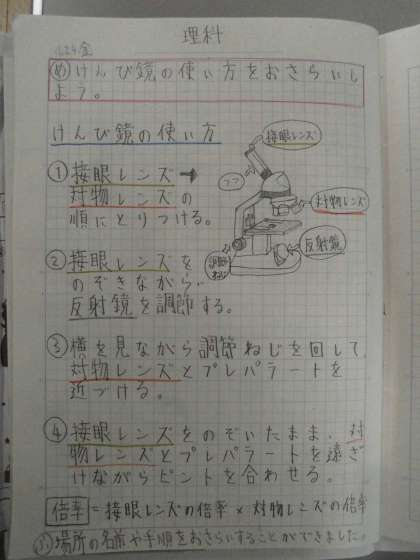 理科
6/24金
め けんび鏡の使い方をおさらいし
よう。
けんび鏡の使い方
① 接眼レンズ→
対物レンズの
順にとりつける。
接眼レンズ
つつ
対物レンズ
反射鏡
調節
ねじ
② 接眼レンズを
のぞきながら、
反射鏡を調節する。
③ 横を見ながら調節ねじを回して、
対物レンズとプレパラートを
近づける。
④ 接眼レンズをのぞいたまま、対
物レンズとプレパラートを遠ざ
けながらピントを合わせる。
倍率=接眼レンズの倍率×対物レンズの倍率
ふ 場所の名前や手順をおさらいすることができました。